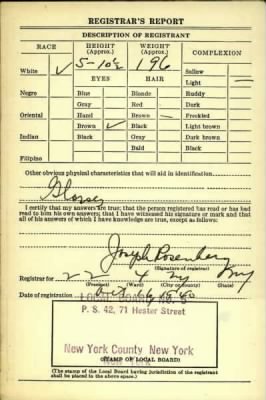 REGISTRAR'S REPORT
DESCRIPTION OF REGISTRANT
RACE HEIGHT (Approx.) WEIGHT (Approx.) COMPLEXION
White ✓ 5-10½ 196 Sallow
Light
EYES HAIR
Negro Blue Blonde Ruddy
Gray Red Dark
Oriental Hazel Brown Freckled
Brown ✓ Black Light brown
Indian Black Gray Dark brown
Bald Black
Filipino
Other obvious physical characteristics that will aid in identification
Glasses
I certify that my answers are true; that the person registered has read or has had
read to him his own answers; that I have witnessed his signature or mark and that
all of his answers of which I have knowledge are true, except as follows:
Joseph Rosenberg
(Signature of registrar)
Registrar for 22 4 NY NY
(Precinct) (Ward) (City or county) (State)
Date of registration Oct 16 1940
LOCAL BOARD NO.
P. S. 42, 71 Hester Street
New York County New York
New York New York
(STAMP OF LOCAL BOARD)
(The stamp of the Local Board having jurisdiction of the registrant
shall be placed in the above space.)